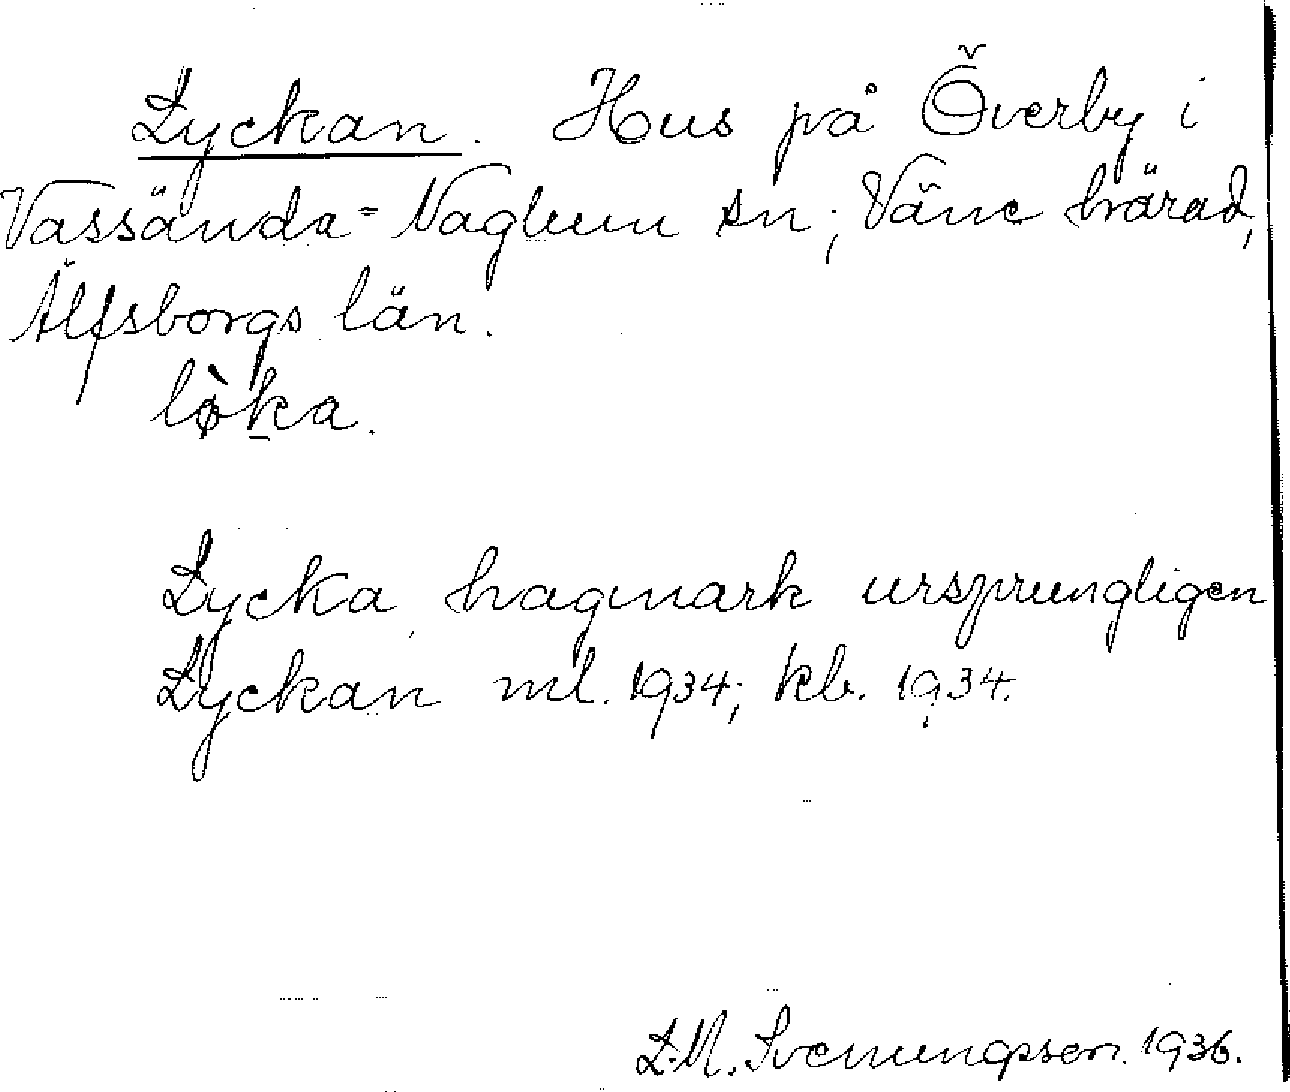 Lyckan. Hus på Överby i
Vassända-Naglum sn; Väne härad,
Älfsborgs län.
lø̀ka.
Lycka, hagmark ursprungligen
Lyckan ml. 1934; kb. 1934.
L.M. Svenungsson. 1936.